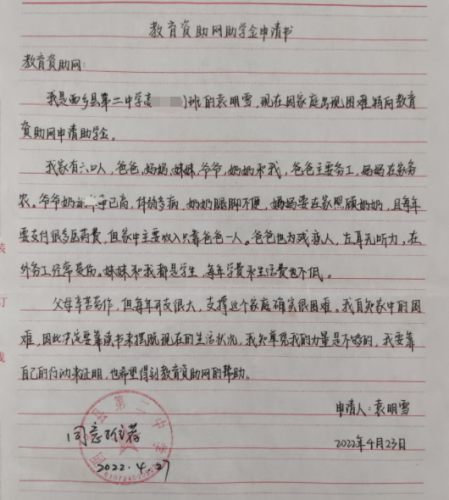 教育资助网助学金申请书
教育资助网:
我是西乡县第二中学高 班的袁明雪,现在因家庭出现困难特向教育
资助网申请助学金。
我家有六口人,爸爸,妈妈,妹妹,爷爷,奶奶和我,爸爸主要务工,妈妈在家务
农。爷爷奶奶 已高,体弱多病,奶奶腿脚不便,妈妈要在家照顾奶奶,且每年
要支付很多医药费,但家中主要收入只靠爸爸一人。爸爸也为残疾人,左耳无听力,在
外务工经常 。妹妹和我都是学生,每年学费和生活费也不低。
父母辛苦劳作,但每年开支很大,支撑这个家庭确实很困难。我自知家中的困
难,因此决定要靠读书来摆脱现在的生活状况,我知单凭我的力量是不够的,我要靠
自己的行动来证明,也希望得到教育资助网的帮助。
申请人:袁明雪
2022年4月23日
同意推荐
2022.4.27
县第二中学